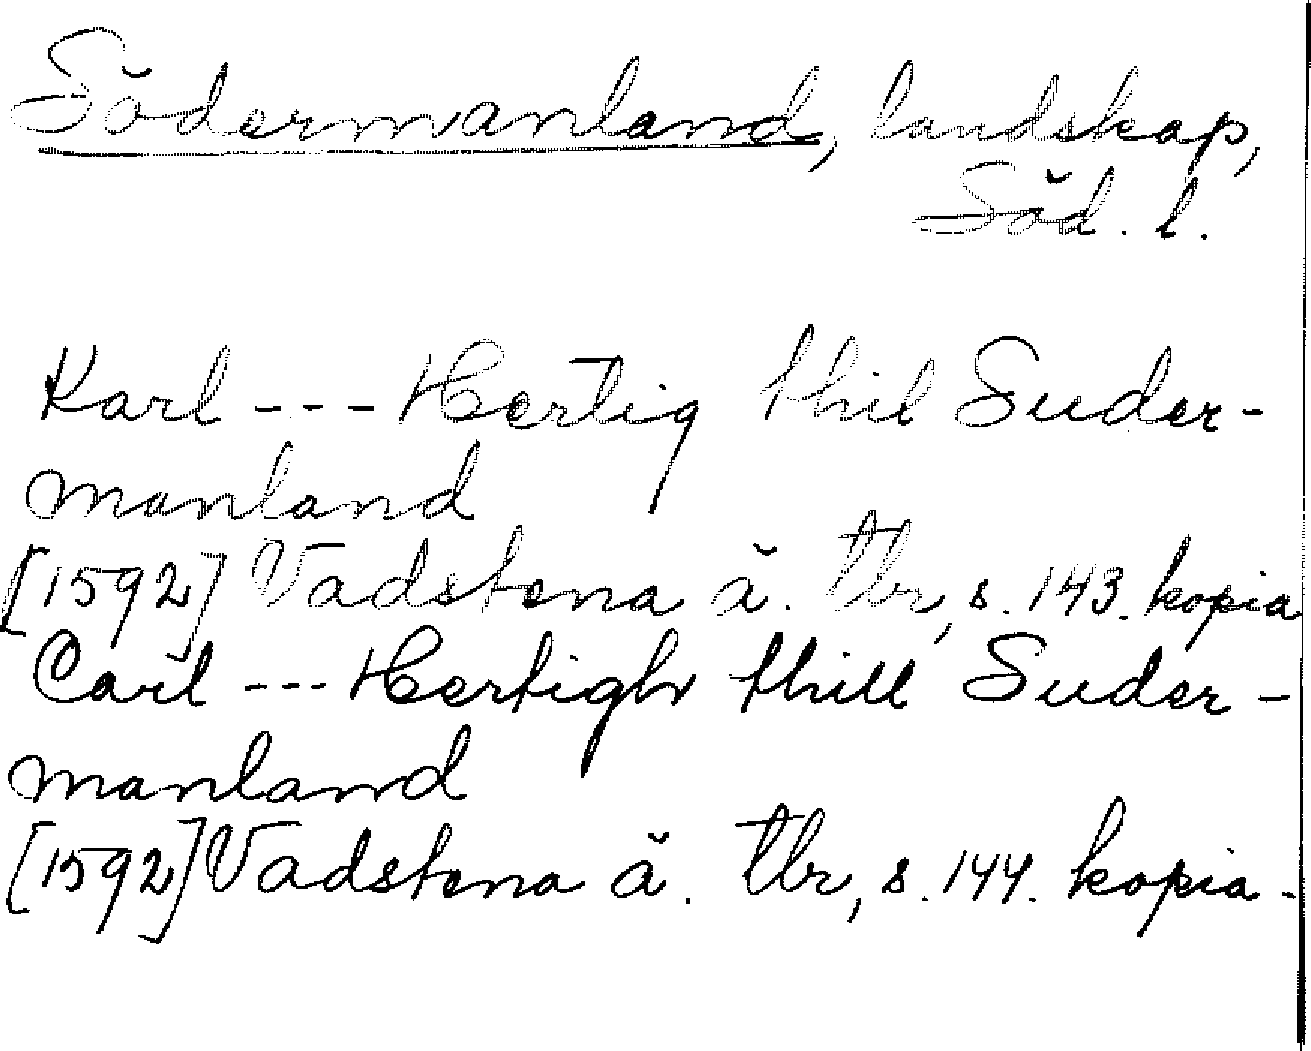 Södermanland, landskap,
Söd. l.
Karl --- Hertig thil Suder-
manland
[1592] Vadstena ä. tbr, s. 143. kopia
Carl --- Hertigh thill Suder-
manland
[1592] Vadstena ä. tbr, s. 144. kopia.